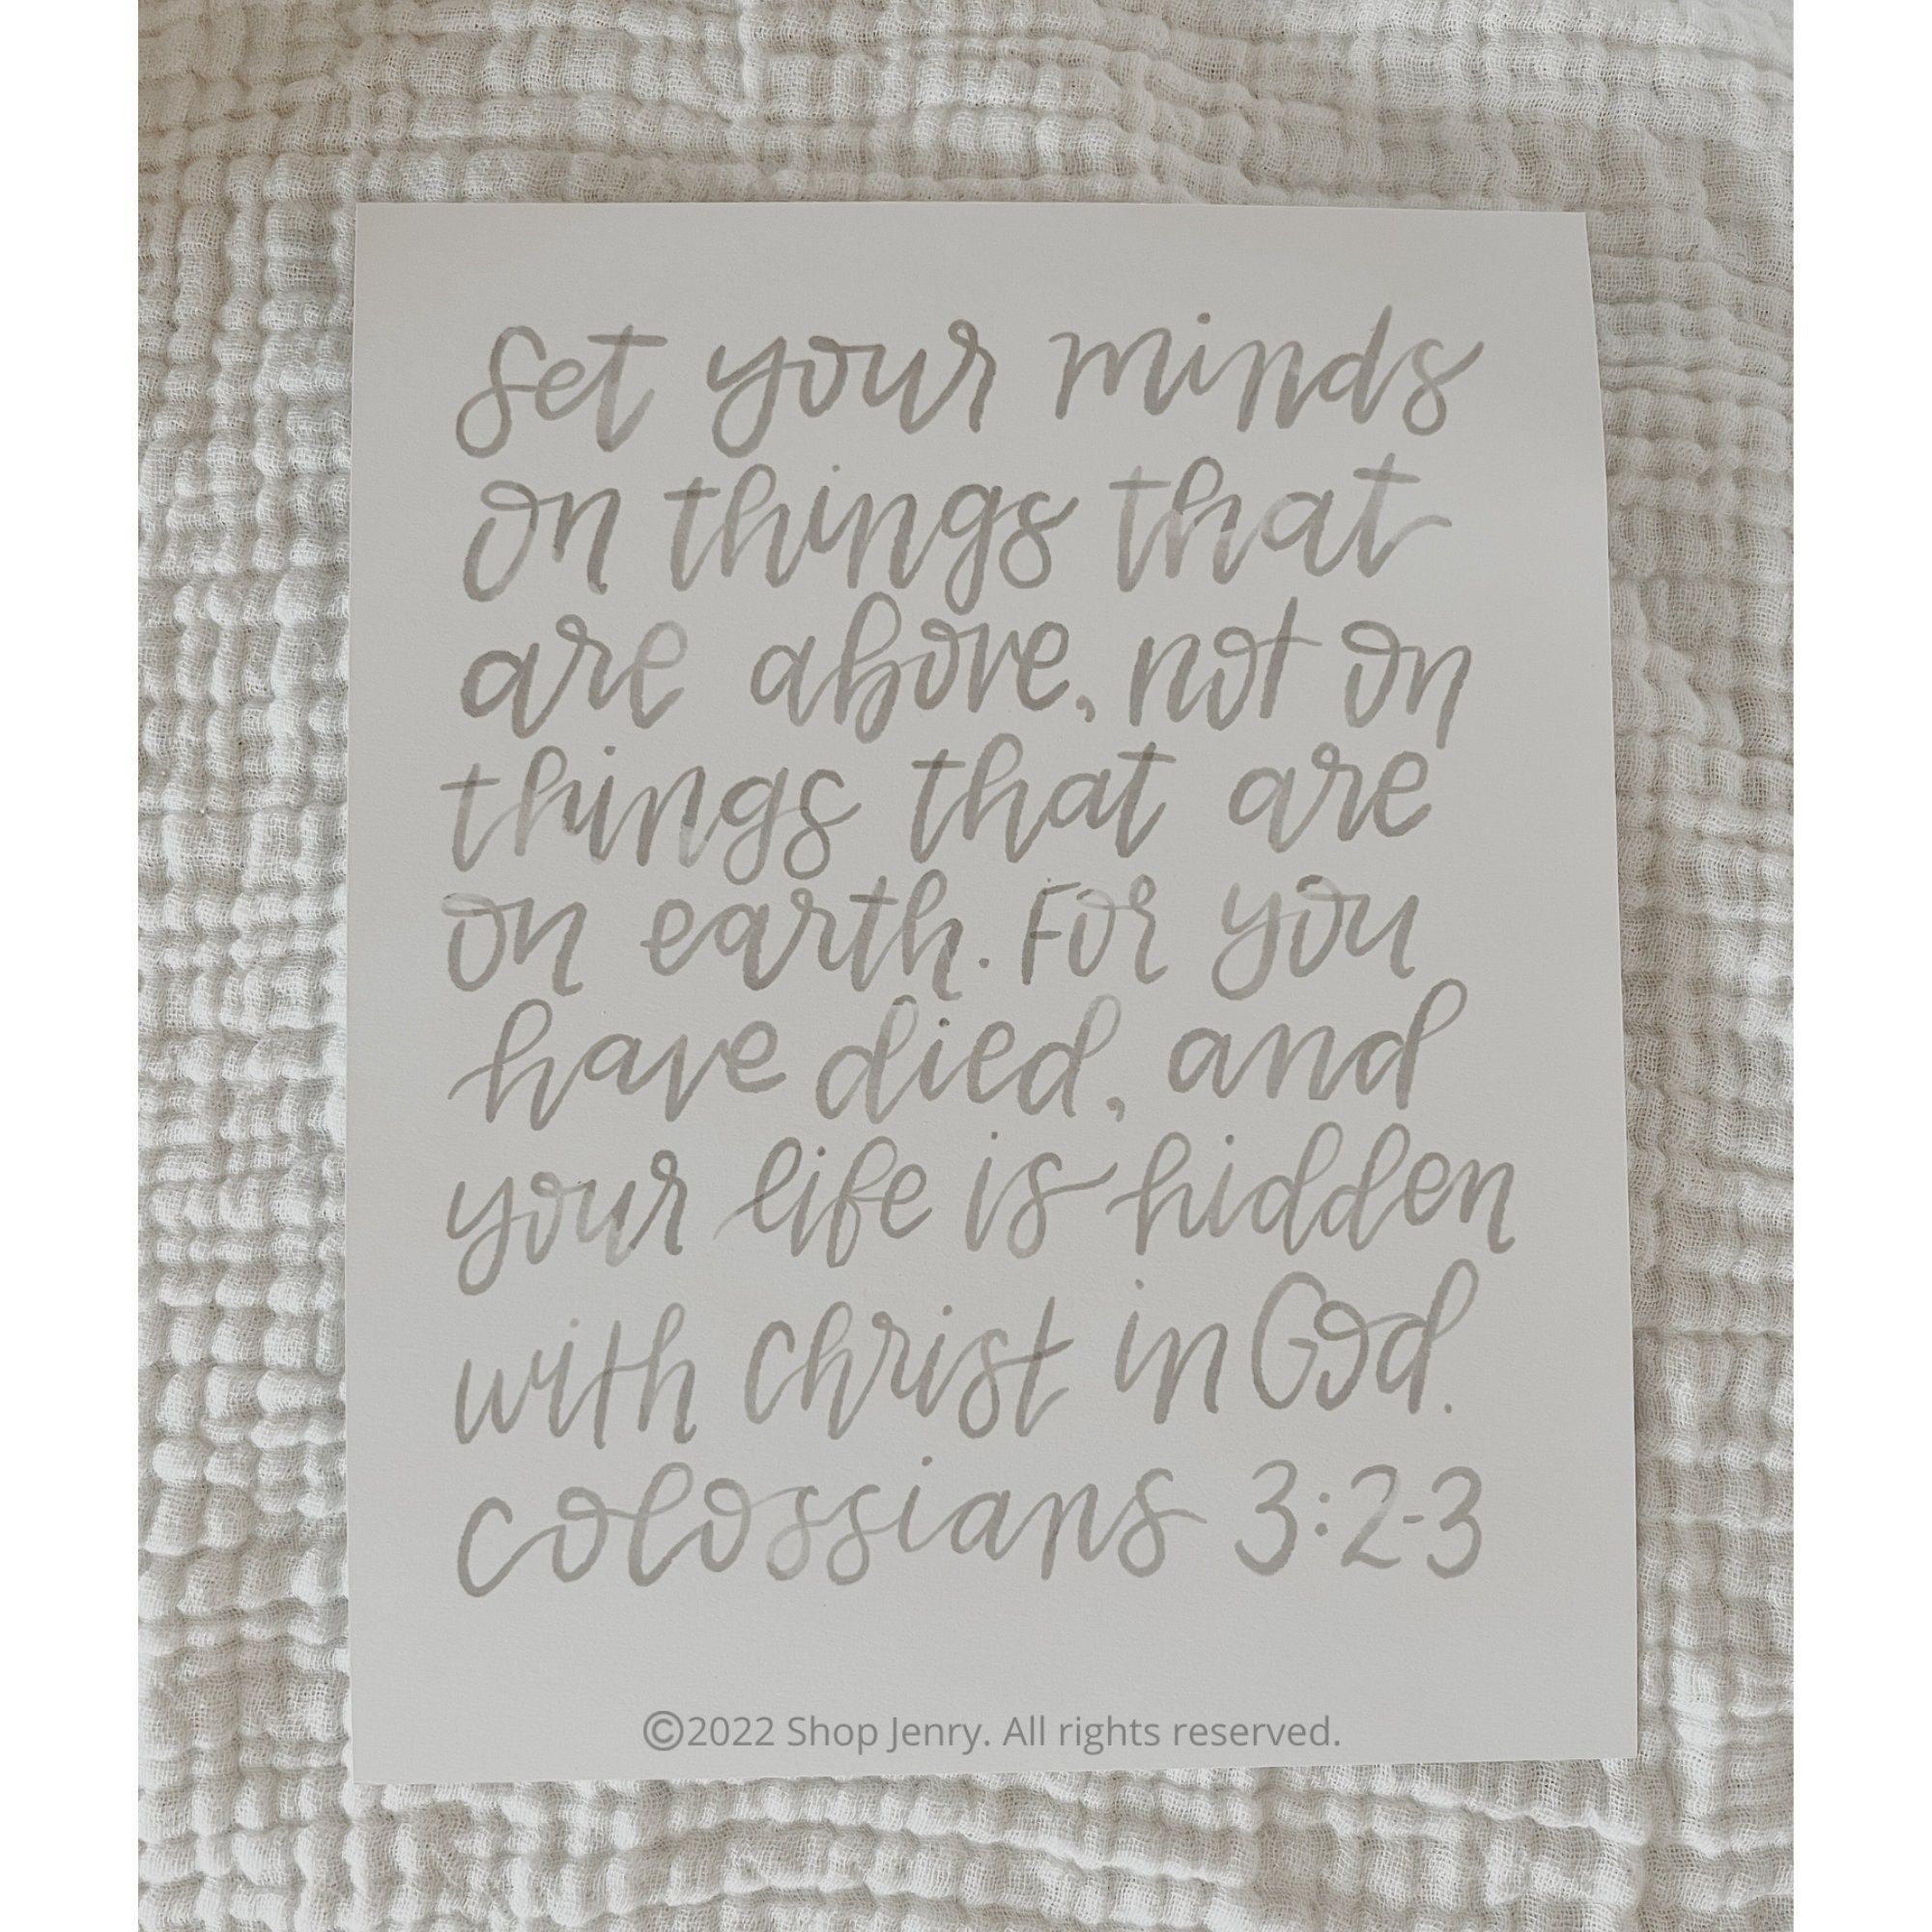 Set your minds
on things that
are above, not on
things that are
on earth. For you
have died, and
your life is hidden
with Christ in God.
Colossians 3:2-3
©2022 Shop Jenry. All rights reserved.